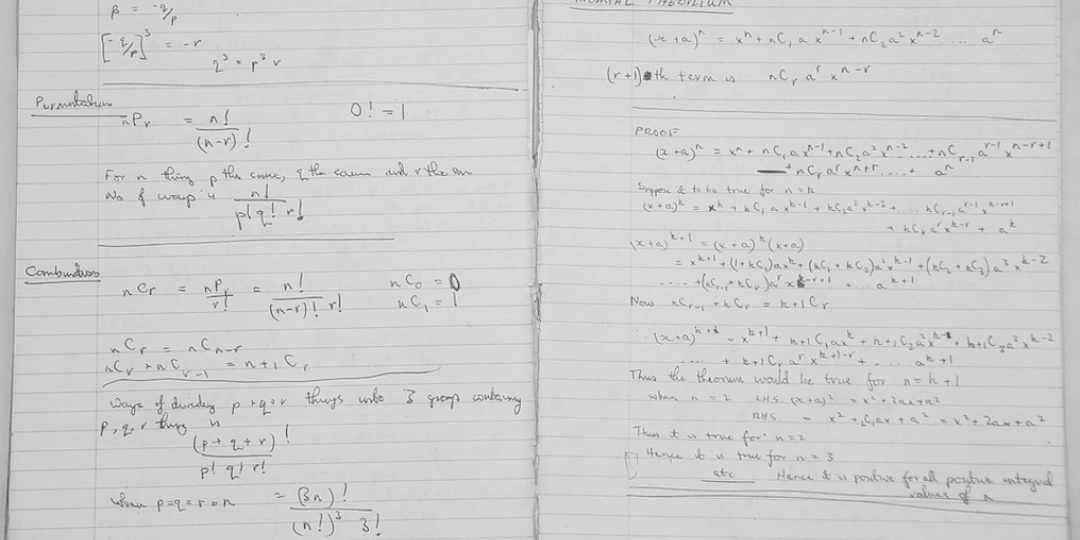 β = -q/p
[-q/p]³ = -r
q³ = p³ r
Permutation
nPr = n!/(n-r)! 0! = 1
For n thing p the same, q the same and r the
No of ways is n!/p! q! r!
Combinations
nCr = nPr/r! = n!/(n-r)! r! nC₀ = 0
nC₁ = 1
nCr = nCn-r
nCr + nCr-1 = n+1Cr
Ways of dividing p + q + r things into 3 groups containing
p, q, r things is
(p + q + r)!/p! q! r!
when p = q = r = n = (3n)!/(n!)³ 3!
THEORIUM
(x + a)ⁿ = xⁿ + nC₁ a xⁿ⁻¹ + nC₂ a² xⁿ⁻² .... aⁿ
(r+1) th term is nCr aʳ xⁿ⁻ʳ
PROOF
(x + a)ⁿ = xⁿ + nC₁ a xⁿ⁻¹ + nC₂ a² xⁿ⁻² ..... + nCr-1 aʳ⁻¹ xⁿ⁻ʳ⁺¹
+ nCr aʳ xⁿ⁺ʳ .... + aⁿ
Suppose it to be true for n = k
(x + a)ᵏ = xᵏ + kC₁ a xᵏ⁻¹ + kC₂ a² xᵏ⁻² + .... kCr-1 aʳ⁻¹ xⁿ⁻ʳ⁺¹
+ kCr aʳ xᵏ⁻ʳ + aᵏ
(x + a)ᵏ⁺¹ = (x + a)ᵏ (x + a)
= xᵏ⁺¹ + (1 + kC₁) a xᵏ + (kC₁ + kC₂) a² xᵏ⁻¹ + (kC₂ + kC₃) a³ xᵏ⁻²
..... + (kCr-1 + kCr) aʳ xᵏ⁻ʳ⁺¹ + .. aᵏ⁺¹
Now kCr-1 + kCr = k+1Cr
(x + a)ᵏ⁺¹ = xᵏ⁺¹ + k+1C₁ a xᵏ + k+1C₂ a² xᵏ⁻¹ + k+1C₃ a³ xᵏ⁻²
.... + k+1Cr aʳ xᵏ⁺¹⁻ʳ + .... aᵏ⁺¹
Thus the theorium would be true for n = k + 1
when n = 2 LHS. (x + a)² = x² + 2ax + a²
RHS = x² + ₂C₁ax + a² = x² + 2ax + a²
Thus it is true for n = 2
Hence it is true for n = 3
etc Hence it is positive for all positive integral
values of n